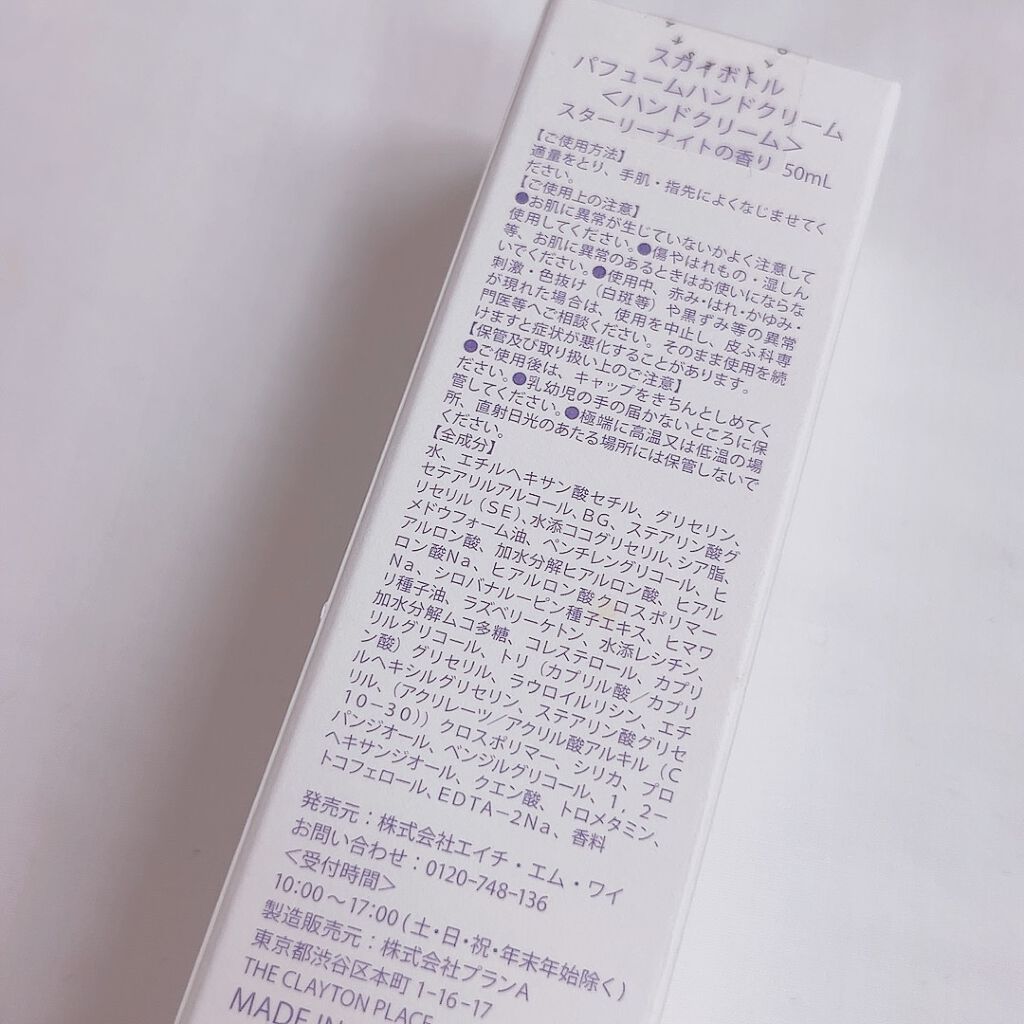 スカイボトル
パフュームハンドクリーム
＜ハンドクリーム＞
スターリーナイトの香り 50mL
【ご使用方法】
適量をとり、手肌・指先によくなじませてく
ださい。
【ご使用上の注意】
●お肌に異常が生じていないかよく注意して
使用してください。●傷やはれもの・湿しん
等、お肌に異常のあるときはお使いにならな
いでください。●使用中、赤み・はれ・かゆみ・
刺激・色抜け（白斑等）や黒ずみ等の異常
が現れた場合は、使用を中止し、皮ふ科専
門医等へご相談ください。そのまま使用を続
けますと症状が悪化することがあります。
【保管及び取り扱い上のご注意】
●ご使用後は、キャップをきちんとしめてく
ださい。●乳幼児の手の届かないところに保
管してください。●極端に高温又は低温の場
所、直射日光のあたる場所には保管しないで
ください。
【全成分】
水、エチルヘキサン酸セチル、グリセリン、
セテアリルアルコール、BG、ステアリン酸グ
リセリル（SE）、水添ココグリセリル、シア脂、
メドウフォーム油、ペンチレングリコール、ヒ
アルロン酸、加水分解ヒアルロン酸、ヒアル
ロン酸Na、ヒアルロン酸クロスポリマー
Na、シロバナルーピン種子エキス、ヒマワ
リ種子油、ラズベリーケトン、水添レシチン、
加水分解ムコ多糖、コレステロール、カプリ
リルグリコール、トリ（カプリル酸／カプリ
ン酸）グリセリル、ラウロイルリシン、エチ
ルヘキシルグリセリン、ステアリン酸グリセ
リル、（アクリレーツ／アクリル酸アルキル（C
10－30））クロスポリマー、シリカ、プロ
パンジオール、ベンジルグリコール、1，2－
ヘキサンジオール、クエン酸、トロメタミン、
トコフェロール、EDTA－2Na、香料
発売元：株式会社エイチ・エム・ワイ
お問い合わせ：0120-748-136
＜受付時間＞
10:00～17:00（土・日・祝・年末年始除く）
製造販売元：株式会社プランA
東京都渋谷区本町 1-16-17
THE CLAYTON PLACE
MADE IN